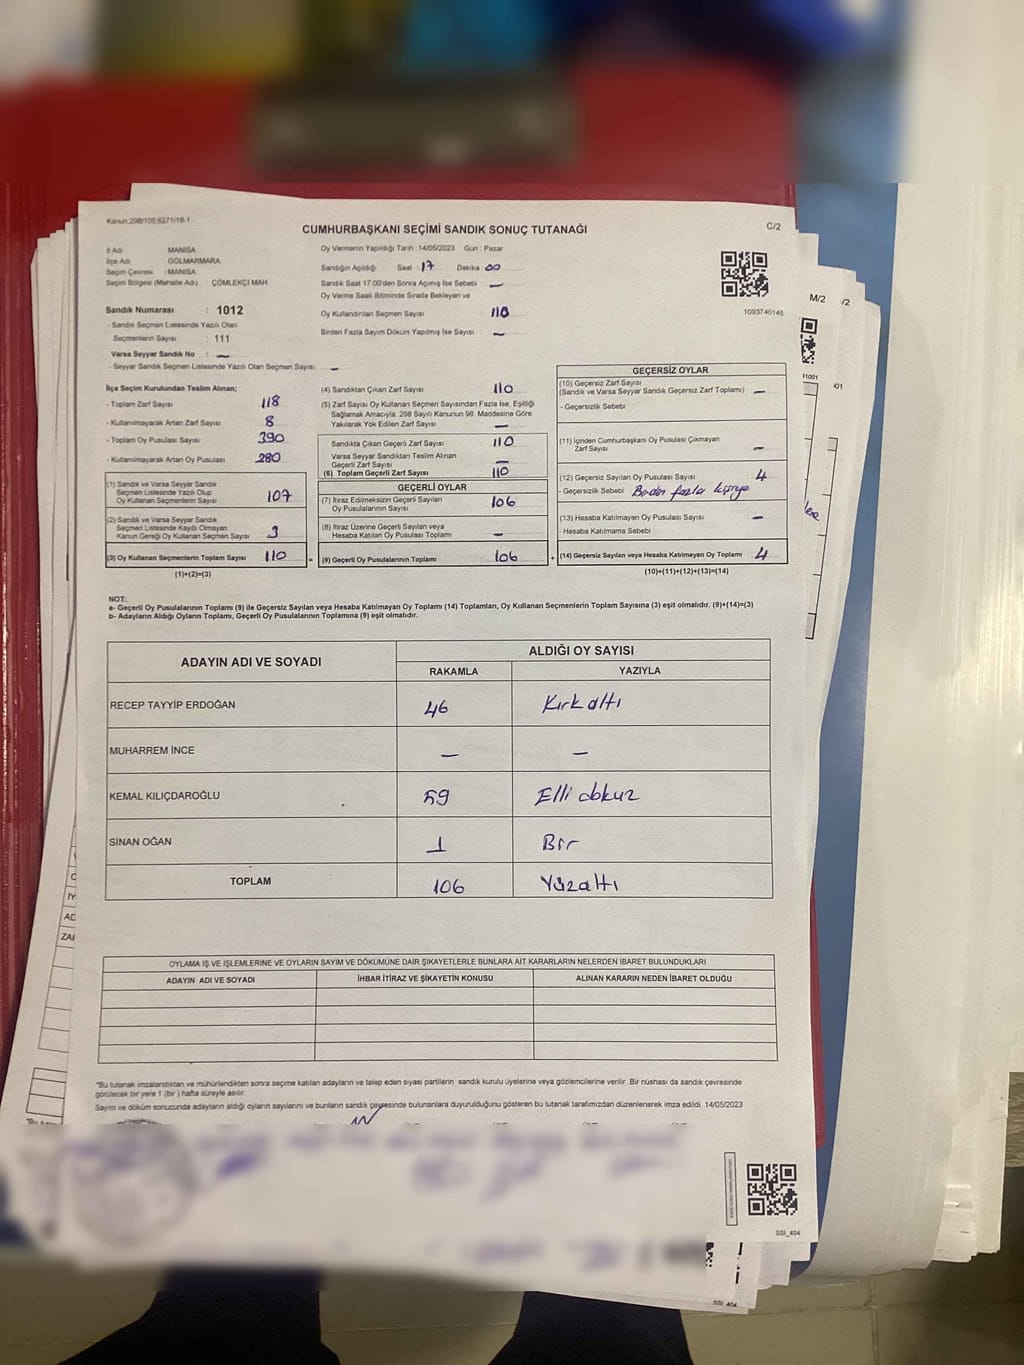 Kanun:298/105;6271/18-1
CUMHURBAŞKANI SEÇİMİ SANDIK SONUÇ TUTANAĞI
C/2
İl Adı MANİSA
İlçe Adı GÖLMARMARA
Seçim Çevresi : MANİSA
Seçim Bölgesi (Mahalle Adı) ÇÖMLEKÇİ MAH.
Oy Vermenin Yapıldığı Tarih :14/05/2023 Gün : Pazar
Sandığın Açıldığı Saat : 17 Dakika 00
Sandık Saat 17.00'den Sonra Açımış İse Sebebi —
Oy Verme Saati Bitiminde Sırada Bekleyen ve
Oy Kullandırılan Seçmen Sayısı 110
Birden Fazla Sayım Döküm Yapılmış İse Sayısı —
1093740145
Sandık Numarası : 1012
- Sandık Seçmen Listesinde Yazılı Olan
Seçmenlerin Sayısı : 111
Varsa Seyyar Sandık No : —
- Seyyar Sandık Seçmen Listesinde Yazılı Olan Seçmen Sayısı: —
İlçe Seçim Kurulundan Teslim Alınan;
- Toplam Zarf Sayısı 118
- Kullanılmayarak Artan Zarf Sayısı 8
- Toplam Oy Pusulası Sayısı 390
- Kullanılmayarak Artan Oy Pusulası 280
(1) Sandık ve Varsa Seyyar Sandık
Seçmen Listesinde Yazılı Olup
Oy Kullanan Seçmenlerin Sayısı 107
(2) Sandık ve Varsa Seyyar Sandık
Seçmen Listesinde Kayıtlı Olmayan
Kanun Gereği Oy Kullanan Seçmen Sayısı 3
(3) Oy Kullanan Seçmenlerin Toplam Sayısı 110
(1)+(2)=(3)
(4) Sandıktan Çıkan Zarf Sayısı 110
(5) Zarf Sayısı Oy Kullanan Seçmen Sayısından Fazla İse, Eşitliği
Sağlamak Amacıyla, 298 Sayılı Kanunun 98. Maddesine Göre
Yakılarak Yok Edilen Zarf Sayısı —
Sandıkta Çıkan Geçerli Zarf Sayısı 110
Varsa Seyyar Sandıktan Teslim Alınan
Geçerli Zarf Sayısı —
(6) Toplam Geçerli Zarf Sayısı 110
GEÇERLİ OYLAR
(7) İtiraz Edilmeksizin Geçerli Sayılan
Oy Pusulalarının Sayısı 106
(8) İtiraz Üzerine Geçerli Sayılan veya
Hesaba Katılan Oy Pusulası Toplamı —
= (9) Geçerli Oy Pusulalarının Toplamı 106
GEÇERSİZ OYLAR
(10) Geçersiz Zarf Sayısı
(Sandık ve Varsa Seyyar Sandık Geçersiz Zarf Toplamı) —
- Geçersizlik Sebebi
(11) İçinden Cumhurbaşkanı Oy Pusulası Çıkmayan
Zarf Sayısı —
(12) Geçersiz Sayılan Oy Pusulası Sayısı 4
- Geçersizlik Sebebi Birden fazla kişiye
(13) Hesaba Katılmayan Oy Pusulası Sayısı —
- Hesaba Katılmama Sebebi
+ (14) Geçersiz Sayılan veya Hesaba Katılmayan Oy Toplamı 4
(10)+(11)+(12)+(13)=(14)
NOT:
a- Geçerli Oy Pusulalarının Toplamı (9) ile Geçersiz Sayılan veya Hesaba Katılmayan Oy Toplamı (14) Toplamları, Oy Kullanan Seçmenlerin Toplam Sayısına (3) eşit olmalıdır. (9)+(14)=(3)
b- Adayların Aldığı Oyların Toplamı, Geçerli Oy Pusulalarının Toplamına (9) eşit olmalıdır.
ADAYIN ADI VE SOYADI ALDIĞI OY SAYISI
RAKAMLA YAZIYLA
RECEP TAYYİP ERDOĞAN 46 Kırk altı
MUHARREM İNCE — —
KEMAL KILIÇDAROĞLU 59 Elli dokuz
SİNAN OĞAN 1 Bir
TOPLAM 106 Yüzaltı
OYLAMA İŞ VE İŞLEMLERİNE VE OYLARIN SAYIM VE DÖKÜMÜNE DAİR ŞİKAYETLERLE BUNLARA AİT KARARLARIN NELERDEN İBARET BULUNDUKLARI
ADAYIN ADI VE SOYADI İHBAR İTİRAZ VE ŞİKAYETİN KONUSU ALINAN KARARIN NEDEN İBARET OLDUĞU
*Bu tutanak imzalandıktan ve mühürlendikten sonra seçime katılan adayların ve talep eden siyasi partilerin sandık kurulu üyelerine veya gözlemcilerine verilir. Bir nüshası da sandık çevresinde
görülecek bir yere 1 (bir ) hafta süreyle asılır.
Sayım ve döküm sonucunda adayların aldığı oyların sayılarını ve bunların sandık çevresinde bulunanlara duyurulduğunu gösteren bu tutanak tarafımızdan düzenlenerek imza edildi. 14/05/2023
SSI_404
M/2
/2